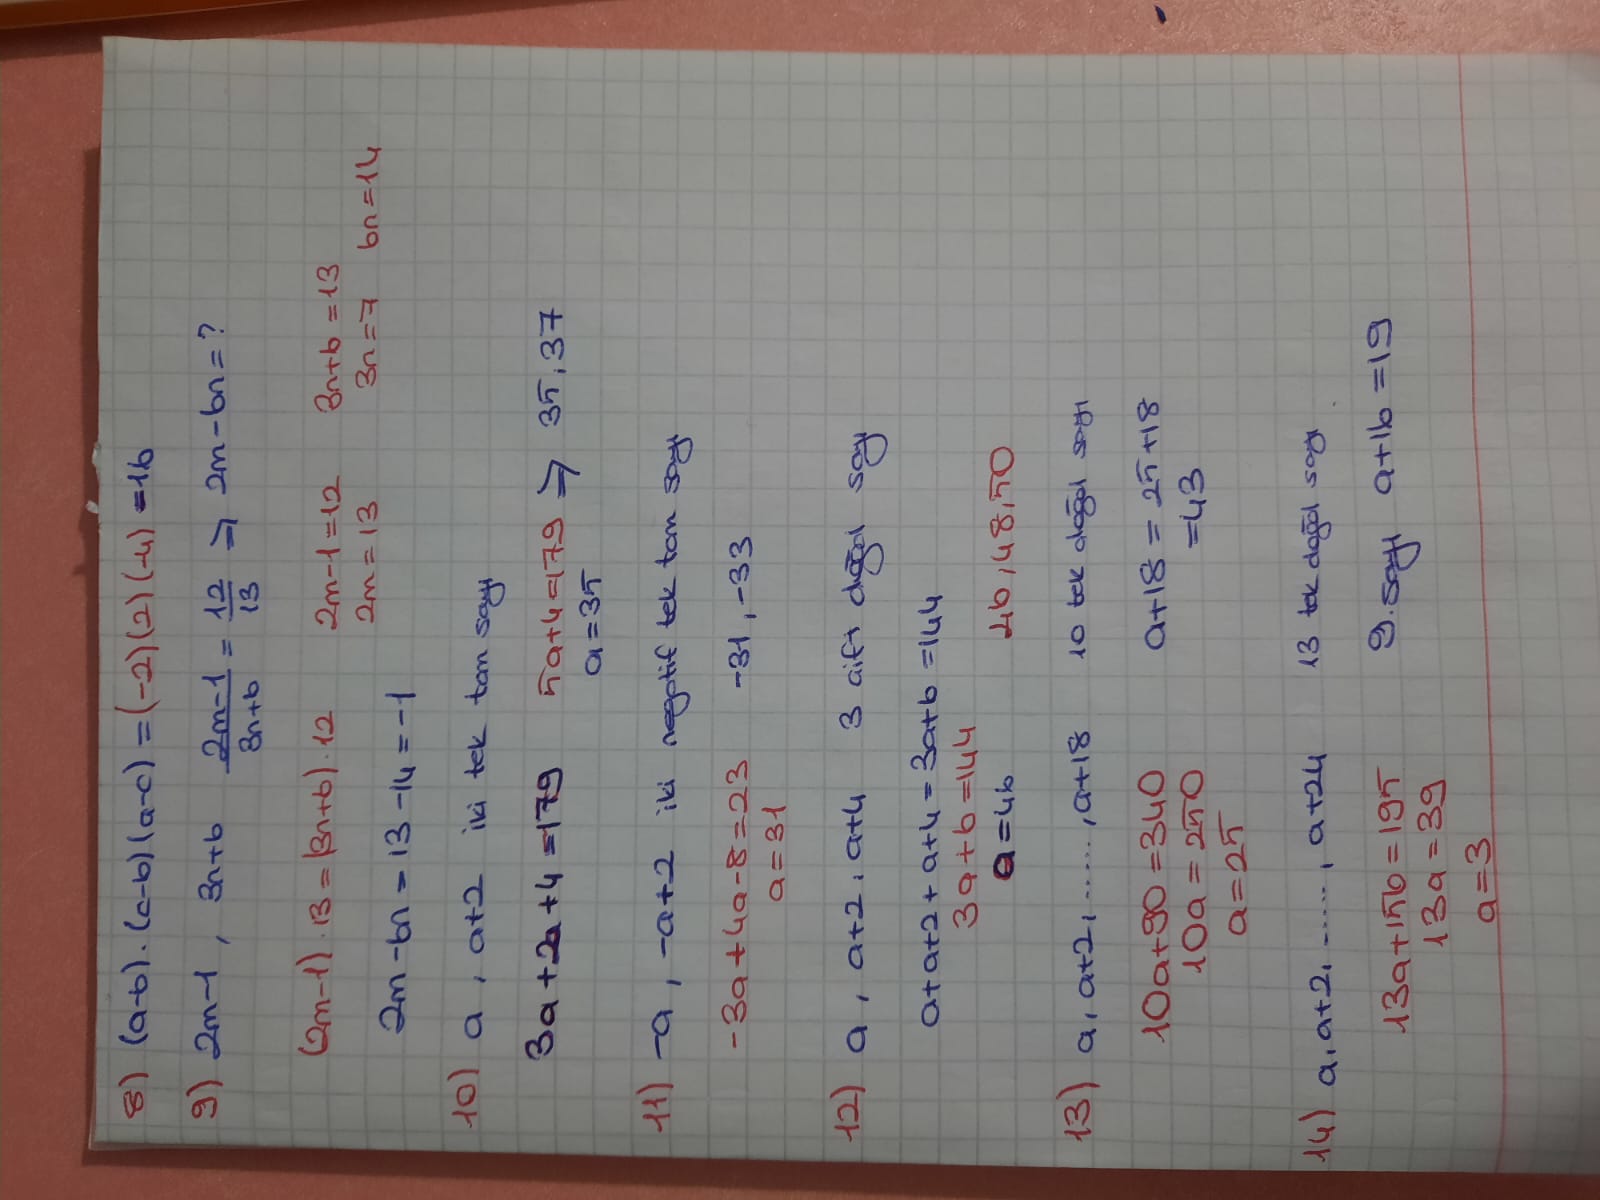 8) (a-b).(c-b)(a-c) = (-2)(2)(-4) = 16
9) 2m-1, 3n+6 2m-1/3n+6 = 12/13 => 2m-6n=?
(2m-1).13 = (3n+6).12 2m-1=12 3n+6=13
2m=13 3n=7 6n=14
2m-6n = 13-14 = -1
10) a, a+2 iki tek tam sayı
3a+2a+4=179 5a+4=179 => 35, 37
a=35
11) -a, -a+2 iki negatif tek tam sayı
-3a+4a-8=23 -31, -33
a=31
12) a, a+2, a+4 3 çift doğal sayı
a+a+2+a+4=3a+6=144
3a+6=144 46, 48, 50
a=46
13) a, a+2, ......, a+18 10 tek doğal sayı
10a+90=340 a+18=25+18
10a=250 =43
a=25
14) a, a+2, ......, a+24 13 tek doğal sayı
13a+156=195 9. sayı a+16=19
13a=39
a=3